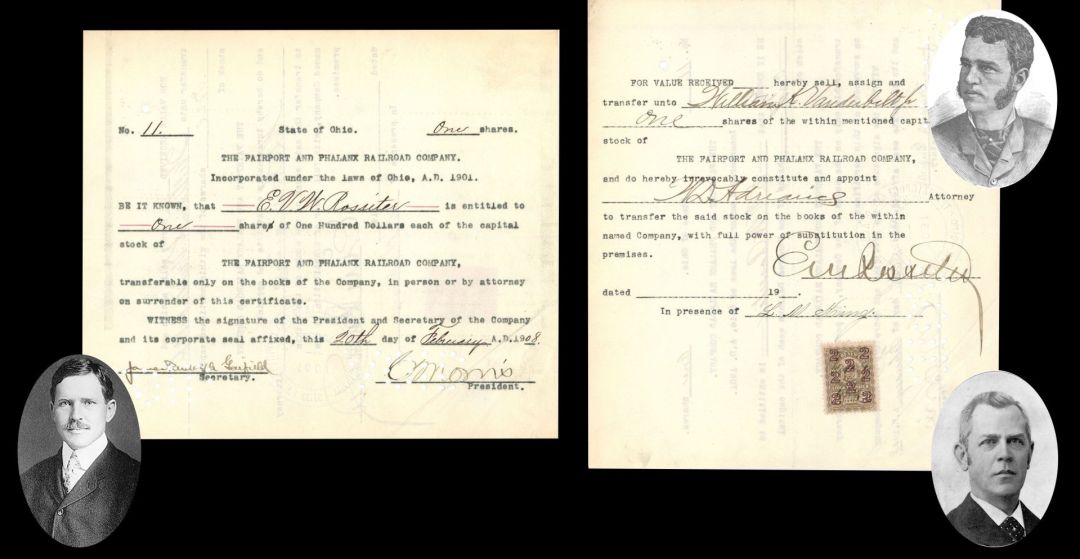 No. 11. State of Ohio. One shares.
THE FAIRPORT AND PHALANX RAILROAD COMPANY.
Incorporated under the laws of Ohio, A.D. 1901.
BE IT KNOWN, that E.V.W. Rossiter is entitled to
One shares of One Hundred Dollars each of the capital
stock of
THE FAIRPORT AND PHALANX RAILROAD COMPANY,
transferable only on the books of the Company, in person or by attorney
on surrender of this certificate.
WITNESS the signature of the President and Secretary of the Company
and its corporate seal affixed, this 20th day of February A.D.1908.
Garfield
Secretary.
President.
FOR VALUE RECEIVED hereby sell, assign and
transfer unto William K. Vanderbilt Jr
One shares of the within mentioned capit
stock of
THE FAIRPORT AND PHALANX RAILROAD COMPANY,
and do hereby irrevocably constitute and appoint
Attorney
to transfer the said stock on the books of the within
named Company, with full power of substitution in the
premises.
dated 19 .
In presence of
2